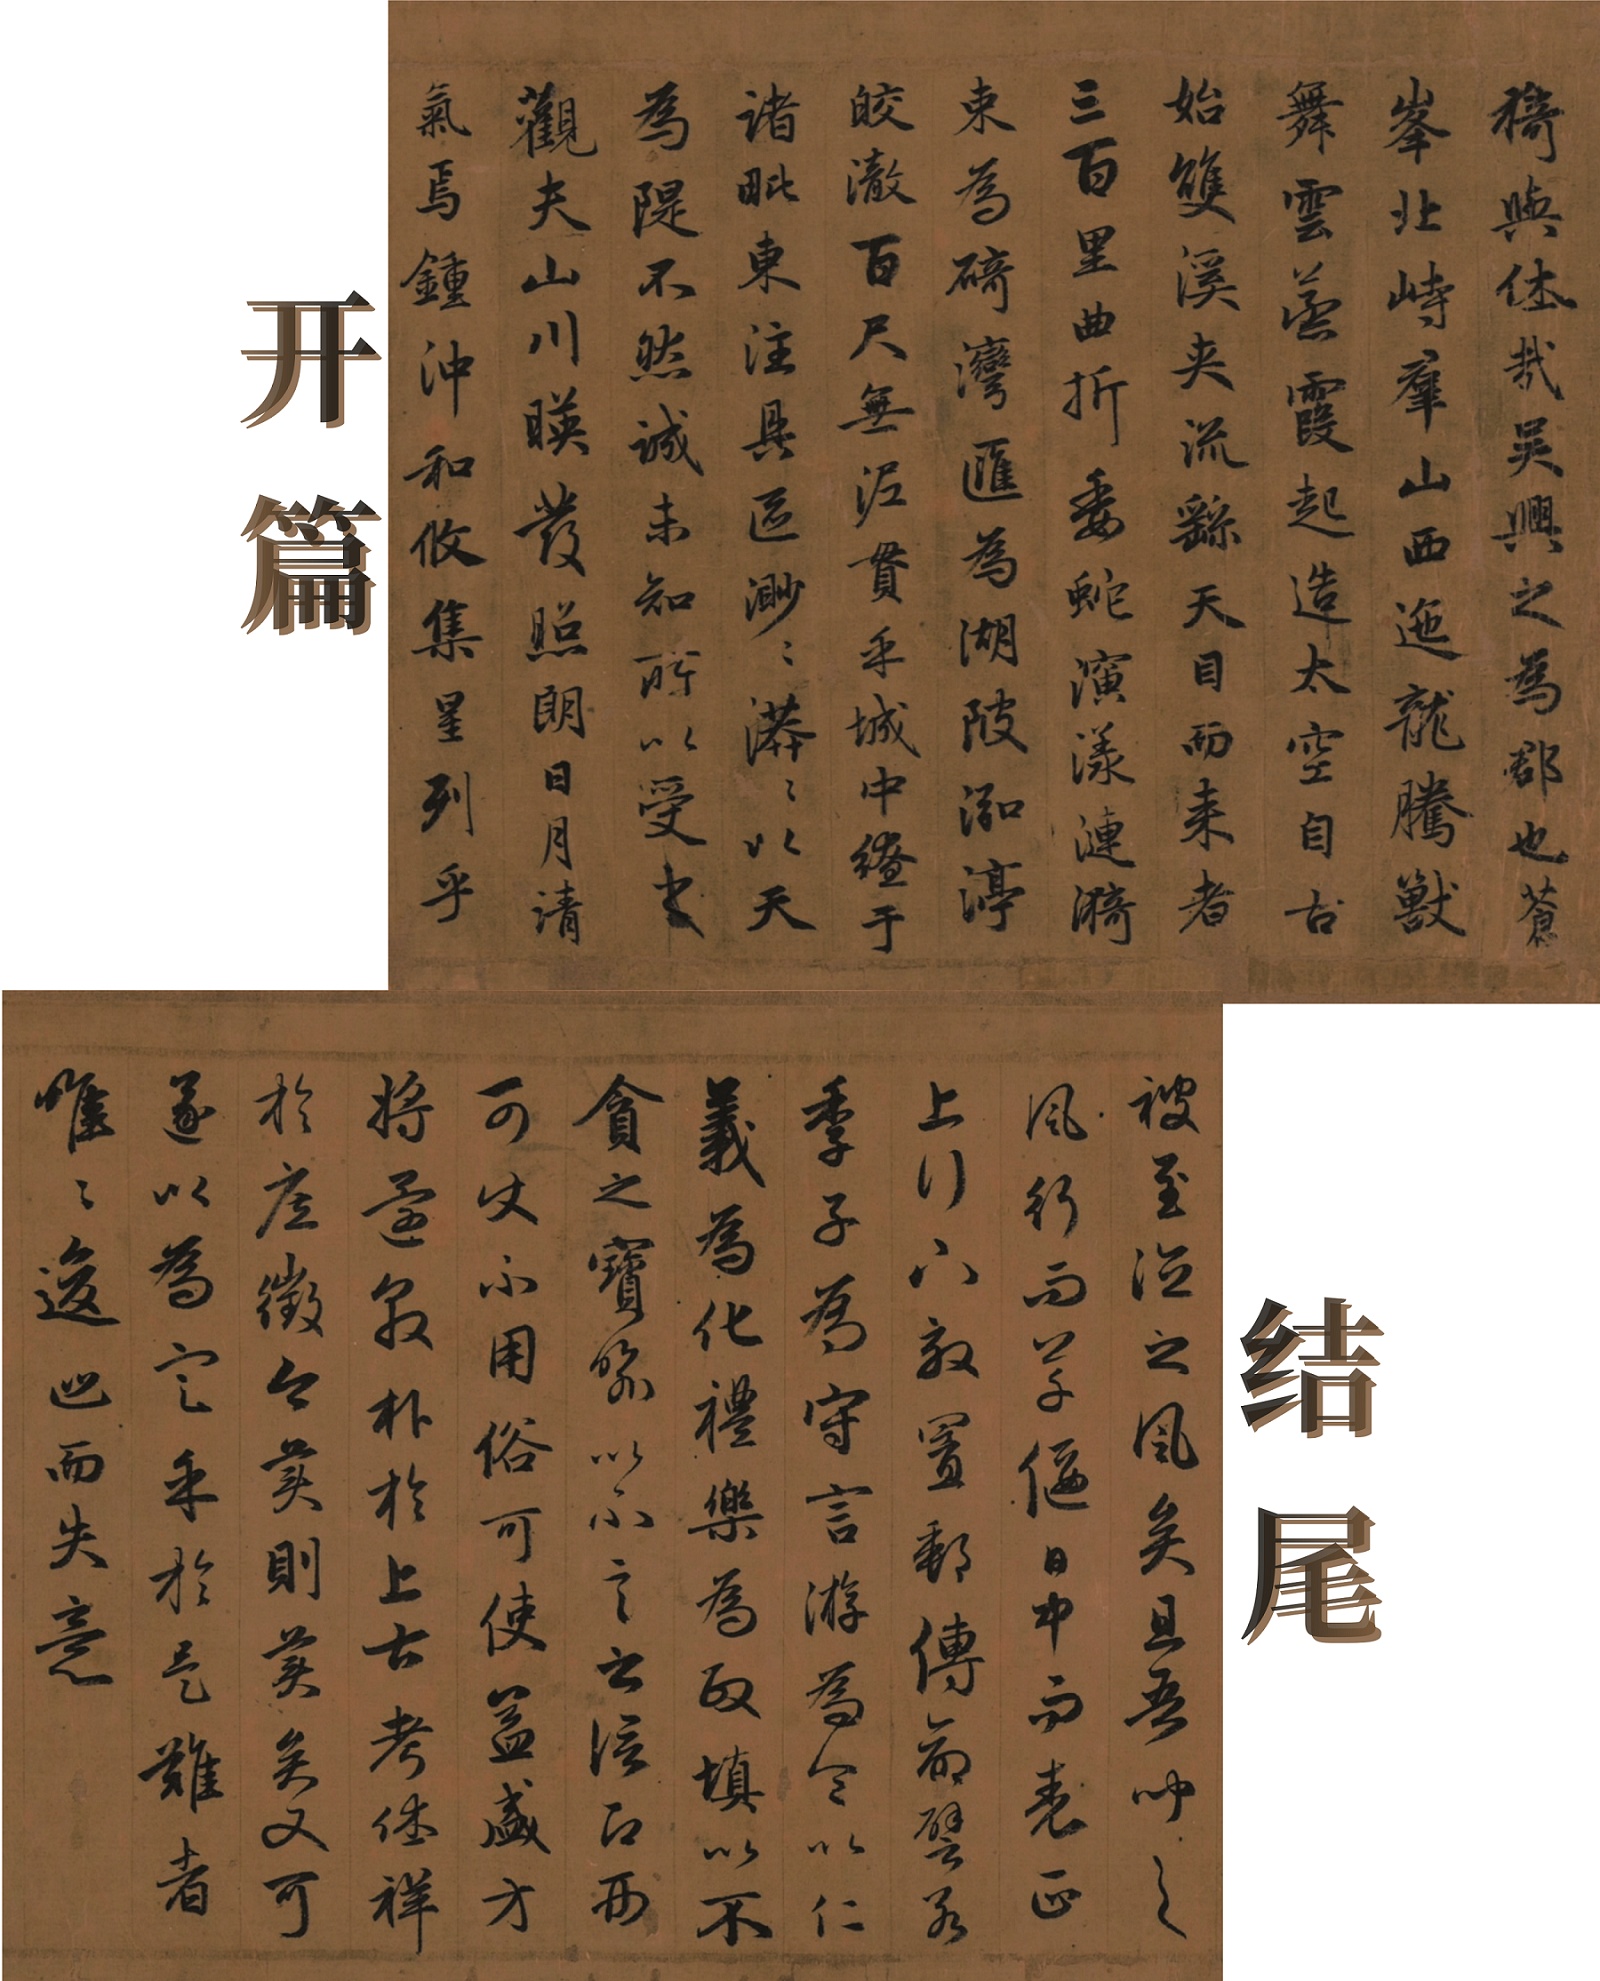 开篇
猗與休哉吳興之為郡也蒼
峯北峙羣山西迤龍騰獸
舞雲蒸霞起造太空自古
始雙溪夾流繇天目而来者
三百里曲折委蛇演漾漣漪
束為碕灣匯為湖陂泓渟
皎澈百尺無泥貫乎城中繚于
諸毗東注具區渺〻漭〻以天
為隄不然誠未知所以受之
觀夫山川暎發照朗日月清
氣焉鍾沖和攸集星列乎
结尾
被至德之風矣且吾聞之
風行而草偃日中而表正
上行下效置郵傳命譬若
季子為守言游為令以仁
義為化禮樂為政填以不
貪之寶喻以不言之信
可使不用俗可使益盛方
將還敦朴於上古考休祥
於庶徵今美則美矣又可
遂以為定乎於是難者
唯〻逡巡而失意